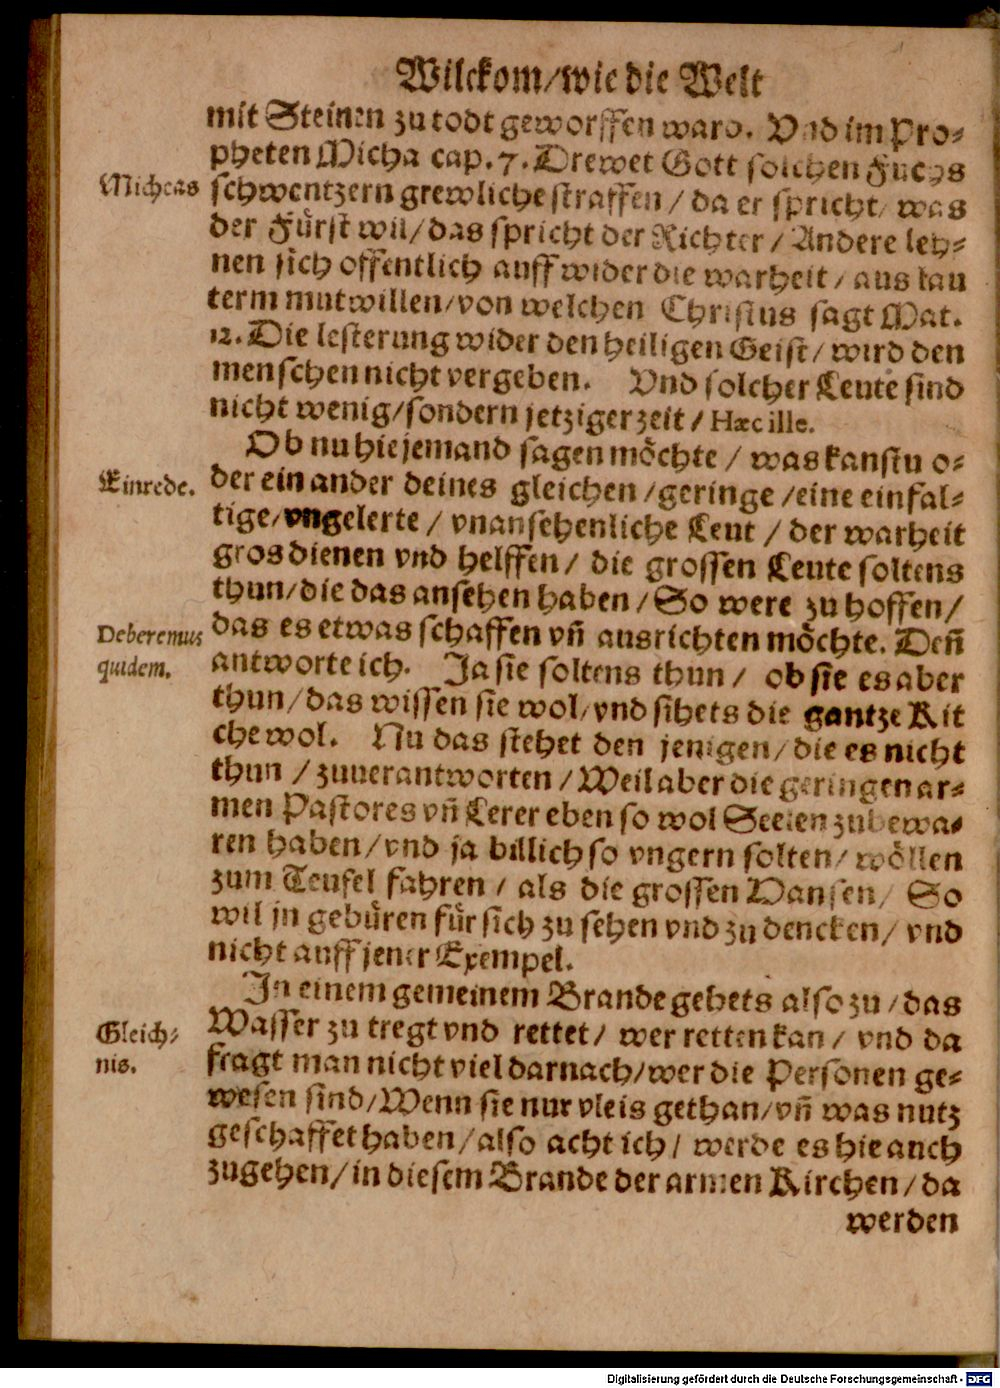 Wilckom/wie die Welt
mit Steinen zu todt geworffen ward. Vnd im Pro⸗
pheten Micha cap. 7. Drewet Gott solchen Fuchs
Micheas
schwentzern grewliche straffen / da er spricht/ was
der Fürst wil/das spricht der Richter / Andere leh⸗
nen sich offentlich auff wider die warheit / aus lau
term mutwillen/von welchen Christus sagt Mat.
12. Die lesterung wider den heiligen Geist/ wird den
menschen nicht vergeben. Vnd solcher Leute sind
nicht wenig/sondern jetziger zeit / Hæc ille.
Ob nu hie jemand sagen möchte / was kanstu o⸗
Einrede.
der ein ander deines gleichen /geringe /eine einfal⸗
tige/vngelerte / vnansehenliche Leut / der warheit
gros dienen vnd helffen/ die grossen Leute soltens
thun/die das ansehen haben /So were zu hoffen/
Deberemus
quidem.
das es etwas schaffen vñ ausrichten möchte. Deñ
antworte ich. Ja sie soltens thun / ob sie es aber
thun/das wissen sie wol/vnd sihets die gantze Kit
che wol. Nu das stehet den jenigen/die es nicht
thun /zuuerantworten /Weil aber die geringen ar⸗
men Pastores vñ Lerer eben so wol Seelen zubewa⸗
ren haben/vnd ja billich so vngern solten/ wöllen
zum Teufel fahren / als die grossen Vansen/ So
wil jn gebüren für sich zu sehen vnd zu dencken/ vnd
nicht auff jener Exempel.
In einem gemeinem Brande gehets also zu /das
Gleich⸗
nis.
Wasser zu tregt vnd rettet/ wer retten kan/ vnd da
fragt man nicht viel darnach/wer die Personen ge⸗
wesen sind/Wenn sie nur vleis gethan/vñ was nutz
geschaffet haben/also acht ich/ werde es hie anch
zugehen/in diesem Brande der armen Kirchen/da
werden
Digitalisierung gefördert durch die Deutsche Forschungsgemeinschaft - DFG